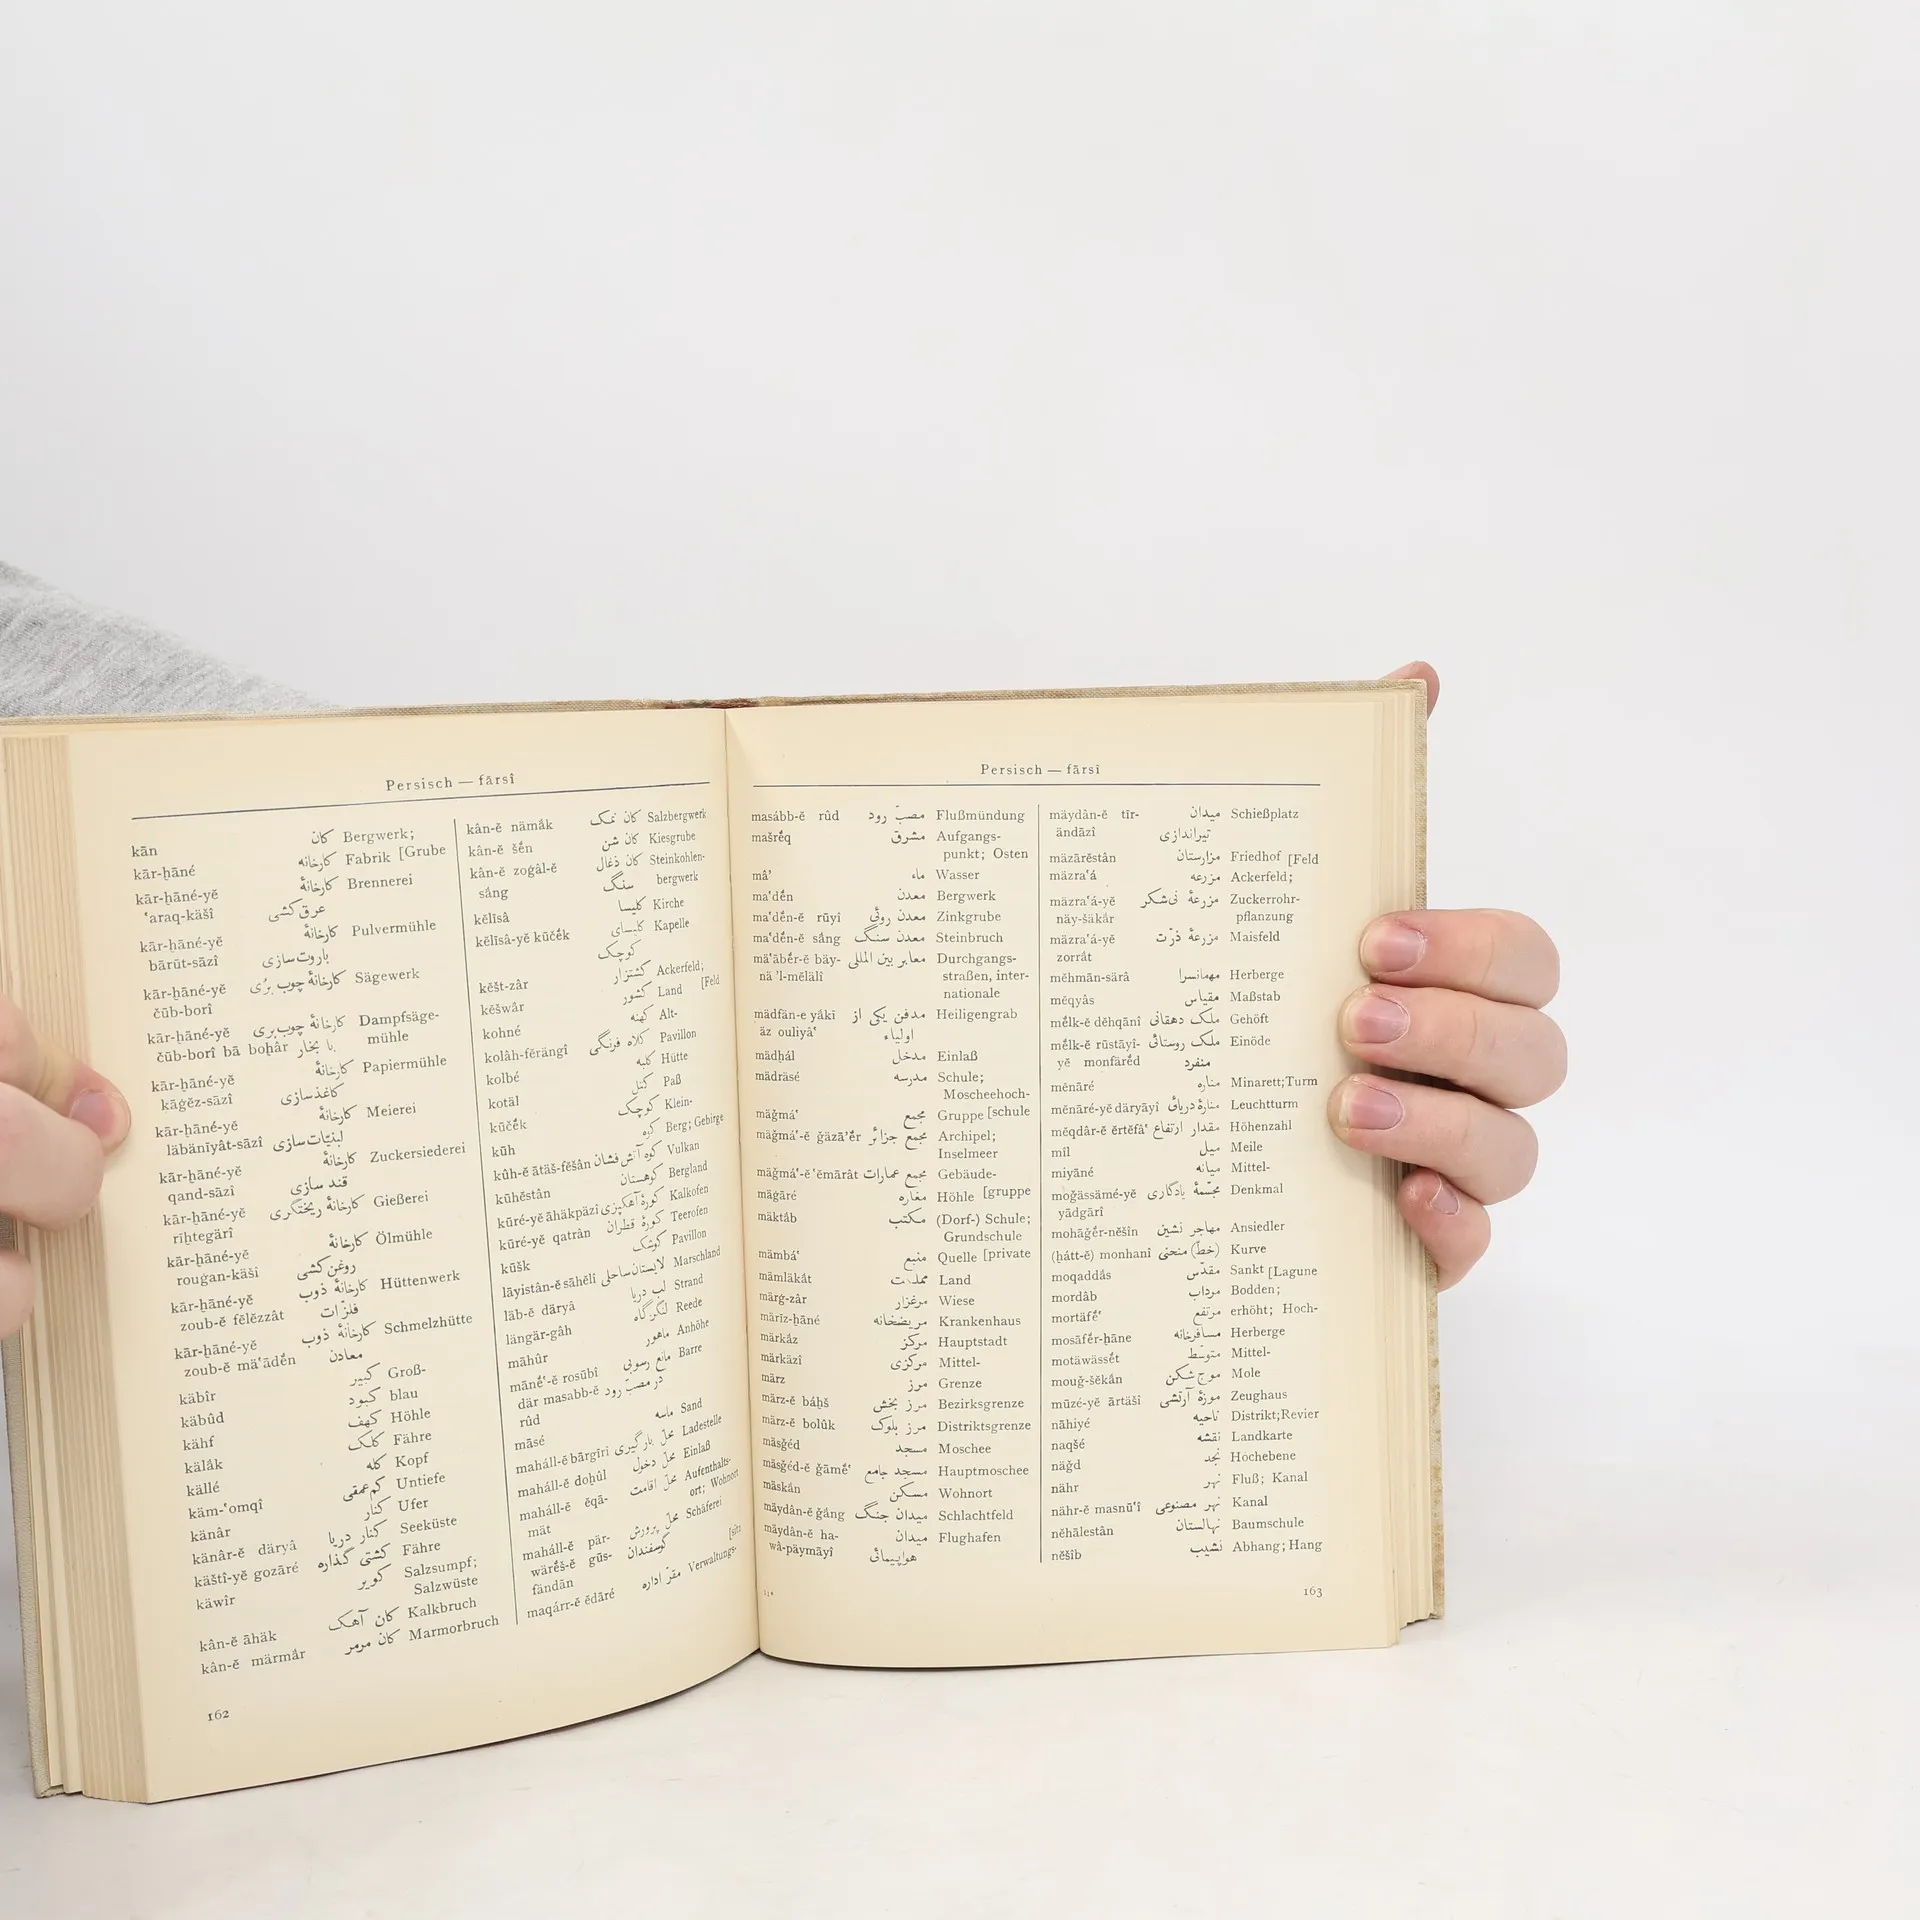 Persisch — fārsî
kān کان Bergwerk;
kār-ḫāné کارخانه Fabrik [Grube
kār-ḫāné-yĕ کارخانهٔ Brennerei
ʿaraq-käšî عرق‌کشی
kār-ḫāné-yĕ کارخانهٔ Pulvermühle
bārūt-sāzî باروت‌سازی
kār-ḫāné-yĕ کارخانهٔ چوب بُری Sägewerk
čūb-borî
kār-ḫāné-yĕ کارخانهٔ چوب‌بری Dampfsäge-
čūb-borî bā boḫâr با بخار mühle
kār-ḫāné-yĕ کارخانهٔ Papiermühle
kāġĕz-sāzî کاغذسازی
kār-ḫāné-yĕ کارخانهٔ Meierei
läbänîyât-sāzî لبنیّات‌سازی
kār-ḫāné-yĕ کارخانهٔ Zuckersiederei
qand-sāzî قند سازی
kār-ḫāné-yĕ کارخانهٔ ریختگری Gießerei
rîḫtegärî
kār-ḫāné-yĕ کارخانهٔ Ölmühle
rouġan-käšî روغن‌کشی
kār-ḫāné-yĕ کارخانهٔ ذوب Hüttenwerk
zoub-ĕ fĕlĕzzât فلزّات
kār-ḫāné-yĕ کارخانهٔ ذوب Schmelzhütte
zoub-ĕ mäʿādĕn معادن
käbîr کبیر Groß-
käbûd کبود blau
kähf کهف Höhle
käläk کلک Fähre
källé کله Kopf
käm-ʿomqî کم‌عمقی Untiefe
känâr کنار Ufer
känâr-ĕ däryâ کنار دریا Seeküste
käštî-yĕ gozāré کشتی گذاره Fähre
käwîr کویر Salzsumpf;
Salzwüste
kân-ĕ āhäk کان آهک Kalkbruch
kân-ĕ märmär کان مرمر Marmorbruch
kân-ĕ nämäk کان نمک Salzbergwerk
kân-ĕ šĕn کان شن Kiesgrube
kân-ĕ zoġâl-ĕ کان ذغال Steinkohlen-
säng سنگ bergwerk
kĕlîsâ کلیسا Kirche
kĕlîsâ-yĕ kūčĕk کلیسای Kapelle
کوچک
kĕšt-zâr کشتزار Ackerfeld;
kĕšwär کشور Land [Feld
kohné کهنه Alt-
kolâh-fĕrängî کلاه فرنگی Pavillon
kolbé کلبه Hütte
kotäl کتل Paß
kūčĕk کوچک Klein-
kûh کوه Berg; Gebirge
kûh-ĕ ātäš-fĕšân کوه آتش‌فشان Vulkan
kūhĕstân کوهستان Bergland
kūré-yĕ āhäkpäzî کورهٔ آهکپزی Kalkofen
kūré-yĕ qatrân کورهٔ قطران Teerofen
kūšk کوشک Pavillon
lāyistân-ĕ sāhĕlî لایستان ساحلی Marschland
läb-ĕ däryâ لب دریا Strand
längär-gâh لنگرگاه Reede
māhûr ماهور Anhöhe
mānĕʿ-ĕ rosūbî مانع رسوبی Barre
där masabb-ĕ در مصبّ رود
rûd
māsé ماسه Sand
maháll-ĕ bārgîrî محلّ بارگیری Ladestelle
maháll-ĕ doḫûl محلّ دخول Einlaß
maháll-ĕ ĕqā- محلّ اقامت Aufenthalts-
mät ort; Wohnort
maháll-ĕ pär- محلّ پرورش Schäferei
wärĕš-ĕ gūs- گوسفندان
fändān [sitz
maqárr-ĕ ĕdāré مقرّ اداره Verwaltungs-
162
Persisch — fārsî
masább-ĕ rûd مصبّ رود Flußmündung
mašrĕq مشرق Aufgangs-
punkt; Osten
mâʾ ماء Wasser
maʿdĕn معدن Bergwerk
maʿdĕn-ĕ rūyî معدن روئی Zinkgrube
maʿdĕn-ĕ säng معدن سنگ Steinbruch
mäʿābĕr-ĕ bäy- معابر بین المللی Durchgangs-
nä ʾl-mĕlälî straßen, inter-
nationale
mädfän-e yäkî مدفن یکی از Heiligengrab
äz ouliyâʾ اولیاء
mädḫál مدخل Einlaß
mädräsé مدرسه Schule;
Moscheehoch-
mäǧmáʿ مجمع Gruppe [schule
mäǧmáʿ-ĕ ǧäzāʾĕr مجمع جزائر Archipel;
Inselmeer
mäǧmáʿ-ĕ ʿĕmārât مجمع عمارات Gebäude-
mäġāré مغاره Höhle [gruppe
mäktäb مکتب (Dorf-) Schule;
Grundschule
mämbáʿ منبع Quelle [private
mämläkät مملکت Land
märġ-zâr مرغزار Wiese
märîz-ḫāné مریضخانه Krankenhaus
märkäz مرکز Hauptstadt
märkäzî مرکزی Mittel-
märz مرز Grenze
märz-ĕ báḫš مرز بخش Bezirksgrenze
märz-ĕ bolûk مرز بلوک Distriktsgrenze
mäsǧéd مسجد Moschee
mäsǧéd-ĕ ǧāmĕʿ مسجد جامع Hauptmoschee
mäskän مسکن Wohnort
mäydân-ĕ ǧäng میدان جنگ Schlachtfeld
mäydân-ĕ ha- میدان Flughafen
wâ-päymāyî هواپیمائی
11*
mäydân-ĕ tîr- میدان Schießplatz
ändāzî تیراندازی
mäzārĕstân مزارستان Friedhof [Feld
mäzraʿá مزرعه Ackerfeld;
mäzraʿá-yĕ مزرعهٔ نی‌شکر Zuckerrohr-
näy-šäkär pflanzung
mäzraʿá-yĕ مزرعهٔ ذرّت Maisfeld
zorrät
mĕhmān-särâ مهمانسرا Herberge
mĕqyâs مقیاس Maßstab
mĕlk-ĕ dĕhqānî ملک دهقانی Gehöft
mĕlk-ĕ rūstāyî- ملک روستائی Einöde
yĕ monfärĕd منفرد
mĕnāré مناره Minarett;Turm
mĕnāré-yĕ däryāyî منارهٔ دریائی Leuchtturm
mĕqdâr-ĕ ĕrtĕfâʿ مقدار ارتفاع Höhenzahl
mîl میل Meile
miyāné میانه Mittel-
moǧässämé-yĕ مجسّمهٔ یادگاری Denkmal
yādgārî
mohāǧĕr-nĕšîn مهاجر نشین Ansiedler
(ḫátt-ĕ) monhanî (خطّ) منحنی Kurve
moqaddäs مقدّس Sankt [Lagune
mordâb مرداب Bodden;
mortäfĕʿ مرتفع erhöht; Hoch-
mosāfĕr-ḫāne مسافرخانه Herberge
motäwässĕt متوسّط Mittel-
mouǧ-šĕkän موج‌شکن Mole
mūzé-yĕ ārtäšî موزهٔ آرتشی Zeughaus
nāhiyé ناحیه Distrikt;Revier
naqšé نقشه Landkarte
näǧd نجد Hochebene
nähr نهر Fluß; Kanal
nähr-ĕ masnūʿî نهر مصنوعی Kanal
nĕhālestân نهالستان Baumschule
nĕšîb نشیب Abhang; Hang
163